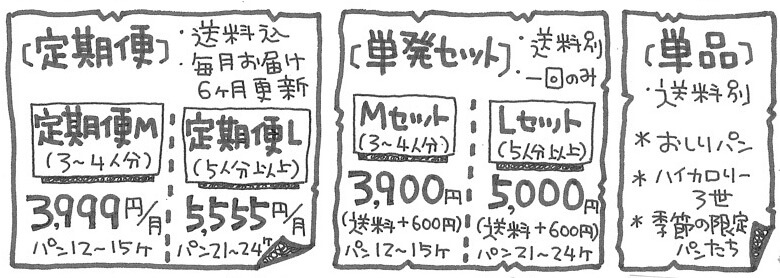 [定期便]
・送料込
・毎月お届け
6ヶ月更新
定期便M
(3〜4人分)
3,999円/月
パン12〜15ヶ
定期便L
(5人分以上)
5,555円/月
パン21〜24ヶ
[単発セット]
・送料別
・一回のみ
Mセット
(3〜4人分)
3,900円
(送料+600円)
パン12〜15ヶ
Lセット
(5人分以上)
5,000円
(送料+600円)
パン21〜24ヶ
[単品]
・送料別
*おしりパン
*ハイカロリー
3世
*季節の限定
パンたち